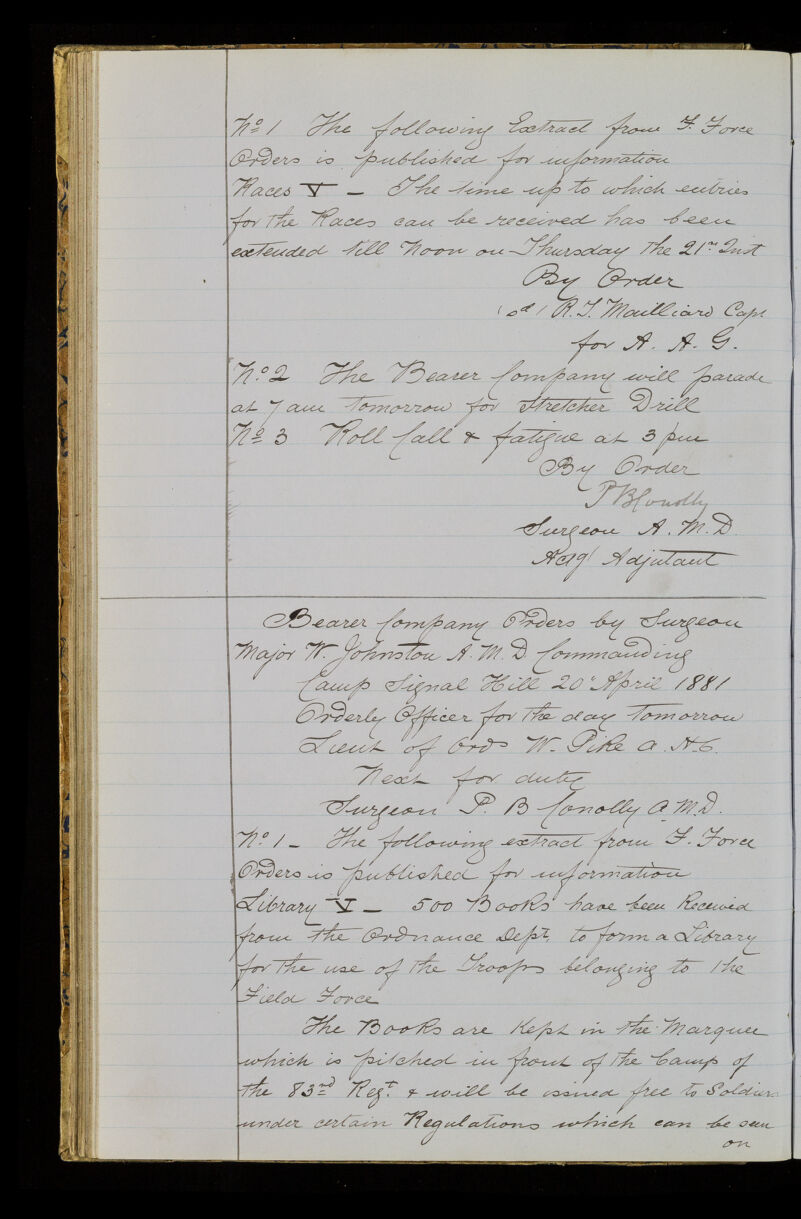 No 1 The following Extract from F. Force
Orders is published for information
Races V – The time up to which entries
for the Races can be received has been
extended till Noon on Thursday the 21st Inst
By Order
(sd) R.T. Mailliard Capt
for A. A. G.
No. 2 The Bearer Company will parade
at 7 am tomorrow for Stretcher Drill
No 3 Roll Call & fatigue at 3 pm
By Order
P B Conolly
Surgeon A. M. D.
Actg Adjutant
Bearer Company Orders by Surgeon
Major W. Johnston A. M. D Commanding
Camp Signal Hill 20" April 1881
Orderly Officer for the day tomorrow
Lieut of Ords W. Pike A. H. C.
Next for duty
Surgeon P. B Conolly A. M. D.
No. 1 – The following extract from F. Force
Orders is published for information
Library V – 500 Books have been Received
from the Ordnance Dept. to form a Library
for the use of the Troops belonging to the
Field Force
The Books are Kept in the Marquee
which is pitched in front of the Camp of
the 83rd Regt. & will be issued free to Soldiers
under certain Regulations which can be seen
on